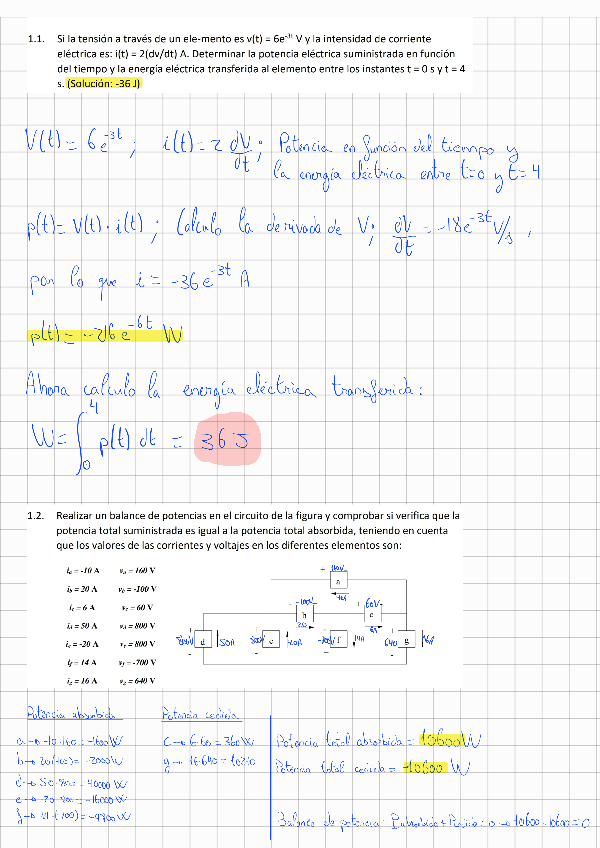 1.1. Si la tensión a través de un ele-mento es v(t) = 6e-3t V y la intensidad de corriente
eléctrica es: i(t) = 2(dv/dt) A. Determinar la potencia eléctrica suministrada en función
del tiempo y la energía eléctrica transferida al elemento entre los instantes t = 0 s y t = 4
s. (Solución: -36 J)
V(t) = 6e^-3t ; i(t) = 2 dV/dt ; Potencia en función del tiempo y
la energía eléctrica entre t=0 y t=4
p(t) = V(t) · i(t) ; Calculo la derivada de V; dV/dt = -18e^-3t V/s ,
por lo que i = -36e^-3t A
p(t) = -216e^-6t W
Ahora calculo la energía eléctrica transferida:
W = ∫ 4 0 p(t) dt = 36 J
1.2. Realizar un balance de potencias en el circuito de la figura y comprobar si verifica que la
potencia total suministrada es igual a la potencia total absorbida, teniendo en cuenta
que los valores de las corrientes y voltajes en los diferentes elementos son:
ia = -10 A va = 160 V
ib = 20 A vb = -100 V
ic = 6 A vc = 60 V
id = 50 A vd = 800 V
ie = -20 A ve = 800 V
if = 14 A vf = -700 V
ig = 16 A vg = 640 V
a
-100V 60V
b c
d 50A e 20A f 14A 640 g 16A
Potencia absorbida Potencia cedida
a → -10·160 = -1600 W c → 6·60 = 360 W Potencia total absorbida = 10600 W
b → 20(-100) = -2000 W g → 16·640 = 10240 Potencia total cedida = -10600 W
d → 50·800 = 40000 W
e → -20·800 = -16000 W
f → 14·(-700) = -9800 W Balance de potencia: Pabsorbida + Pcedida = 0 → 10600 - 10600 = 0